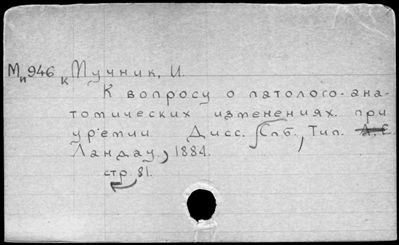 Ми946 к Мучник, И.
К вопросу о патолого-ана-
томических изменениях при
уремии. Дисс. Спб., Тип. А.Е.
Ландау, 1884.
стр. 81.